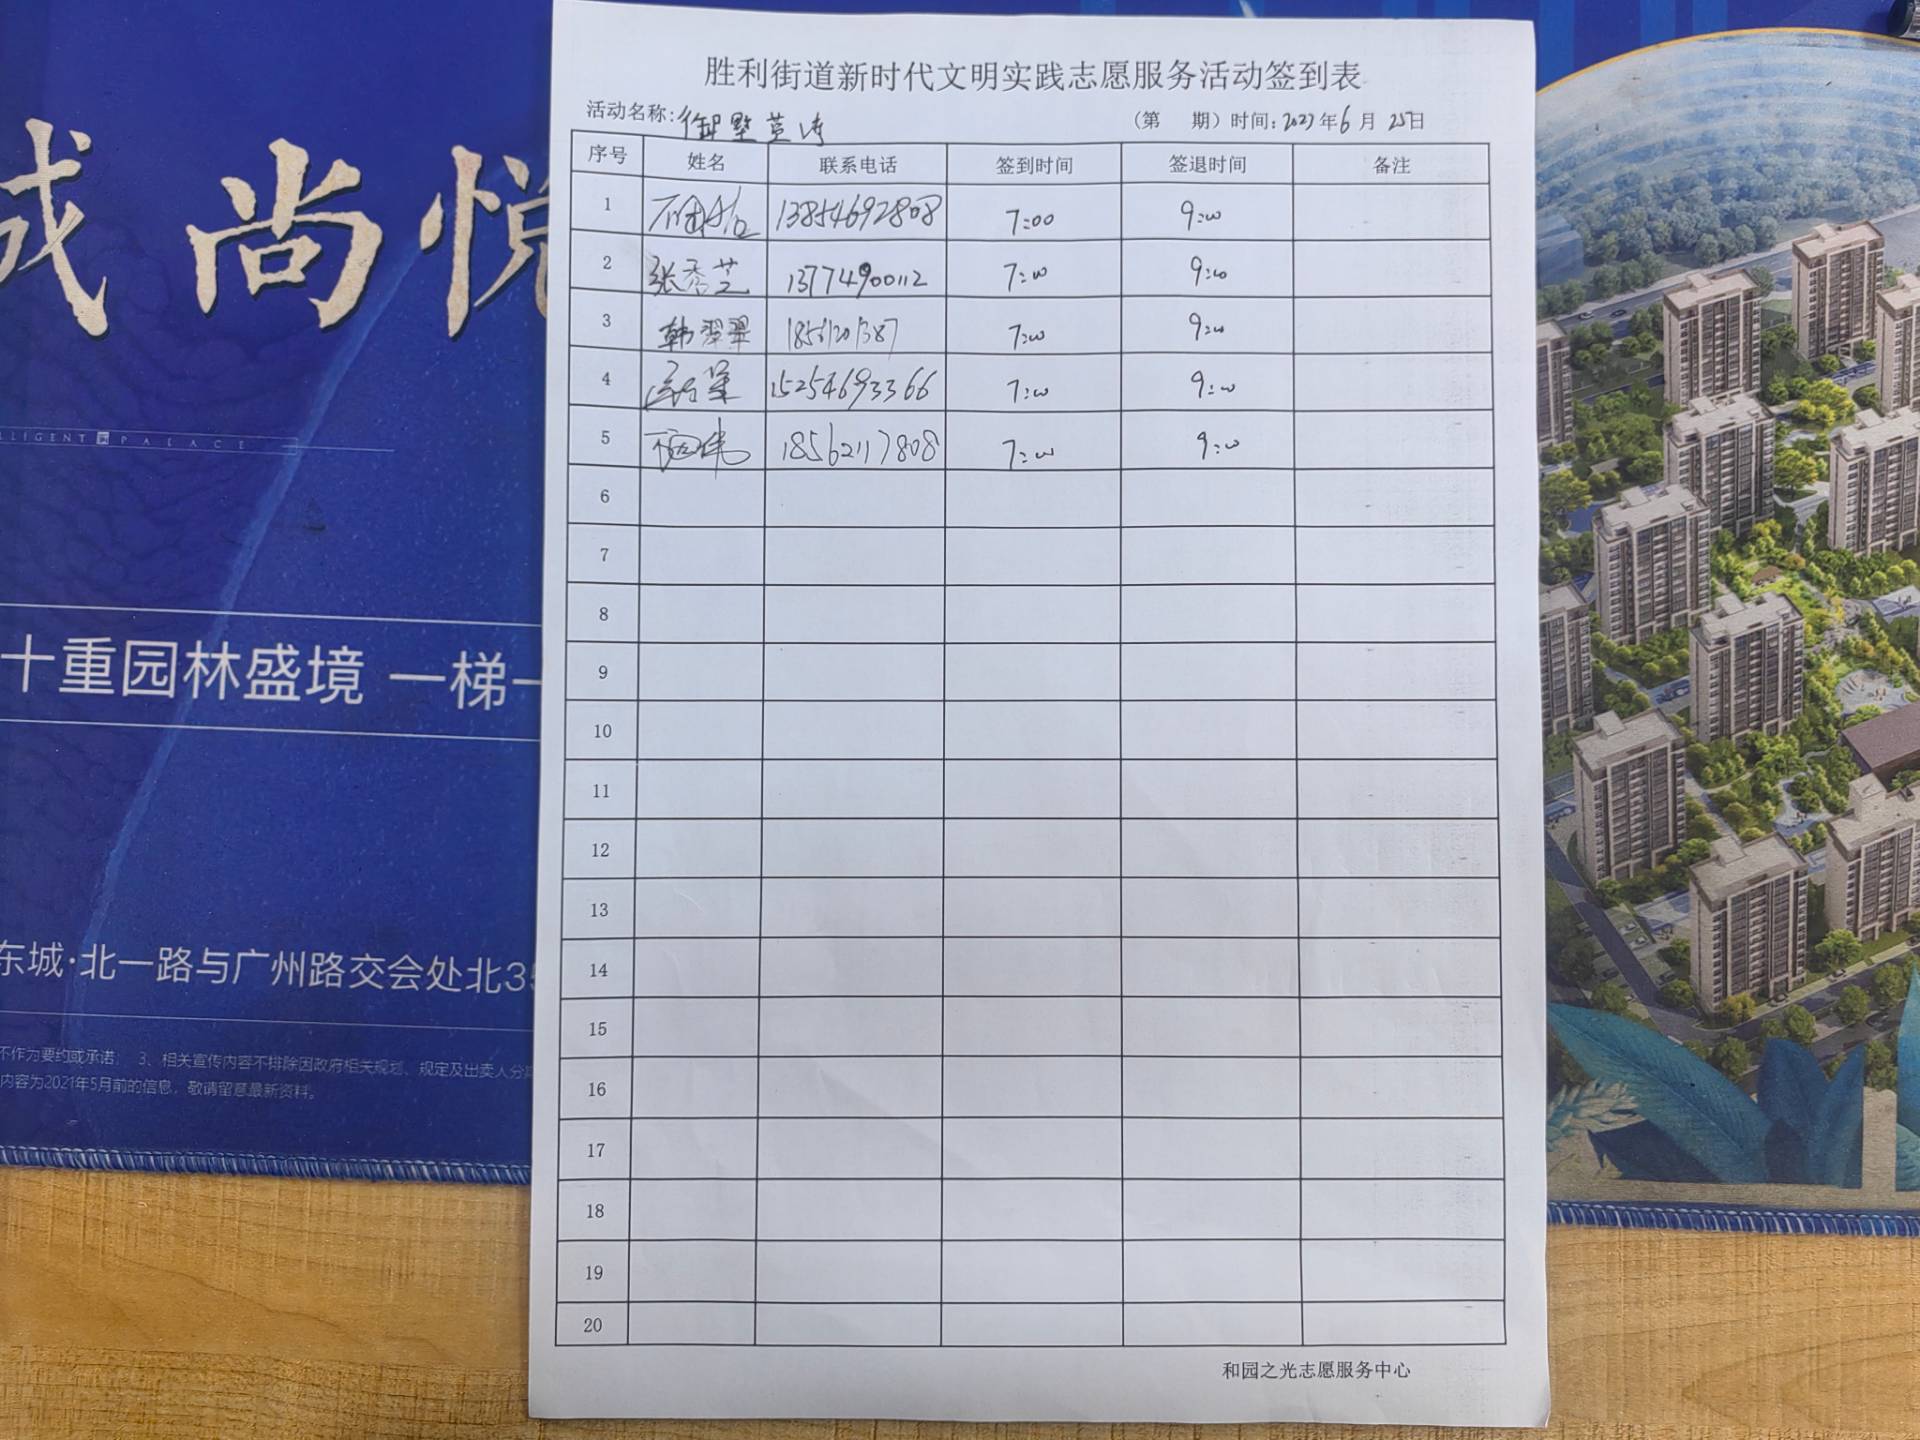 胜利街道新时代文明实践志愿服务活动签到表
活动名称:
(第 期) 时间: 2023年6月25日
序号 姓名 联系电话 签到时间 签退时间 备注
1 13854692808 7:00 9:00
2 张秀芝 13774900112 7:00 9:00
3 韩翠翠 7:00 9:00
4 15254693366 7:00 9:00
5 18562117808 7:00 9:00
6
7
8
9
10
11
12
13
14
15
16
17
18
19
20
和园之光志愿服务中心
成尚悦
LLIGENT PALACE
十重园林盛境 一梯一
东城·北一路与广州路交会处北35
不作为要约或承诺; 3、相关宣传内容不排除因政府相关规划、规定及出卖人分
内容为2021年5月前的信息,敬请留意最新资料。